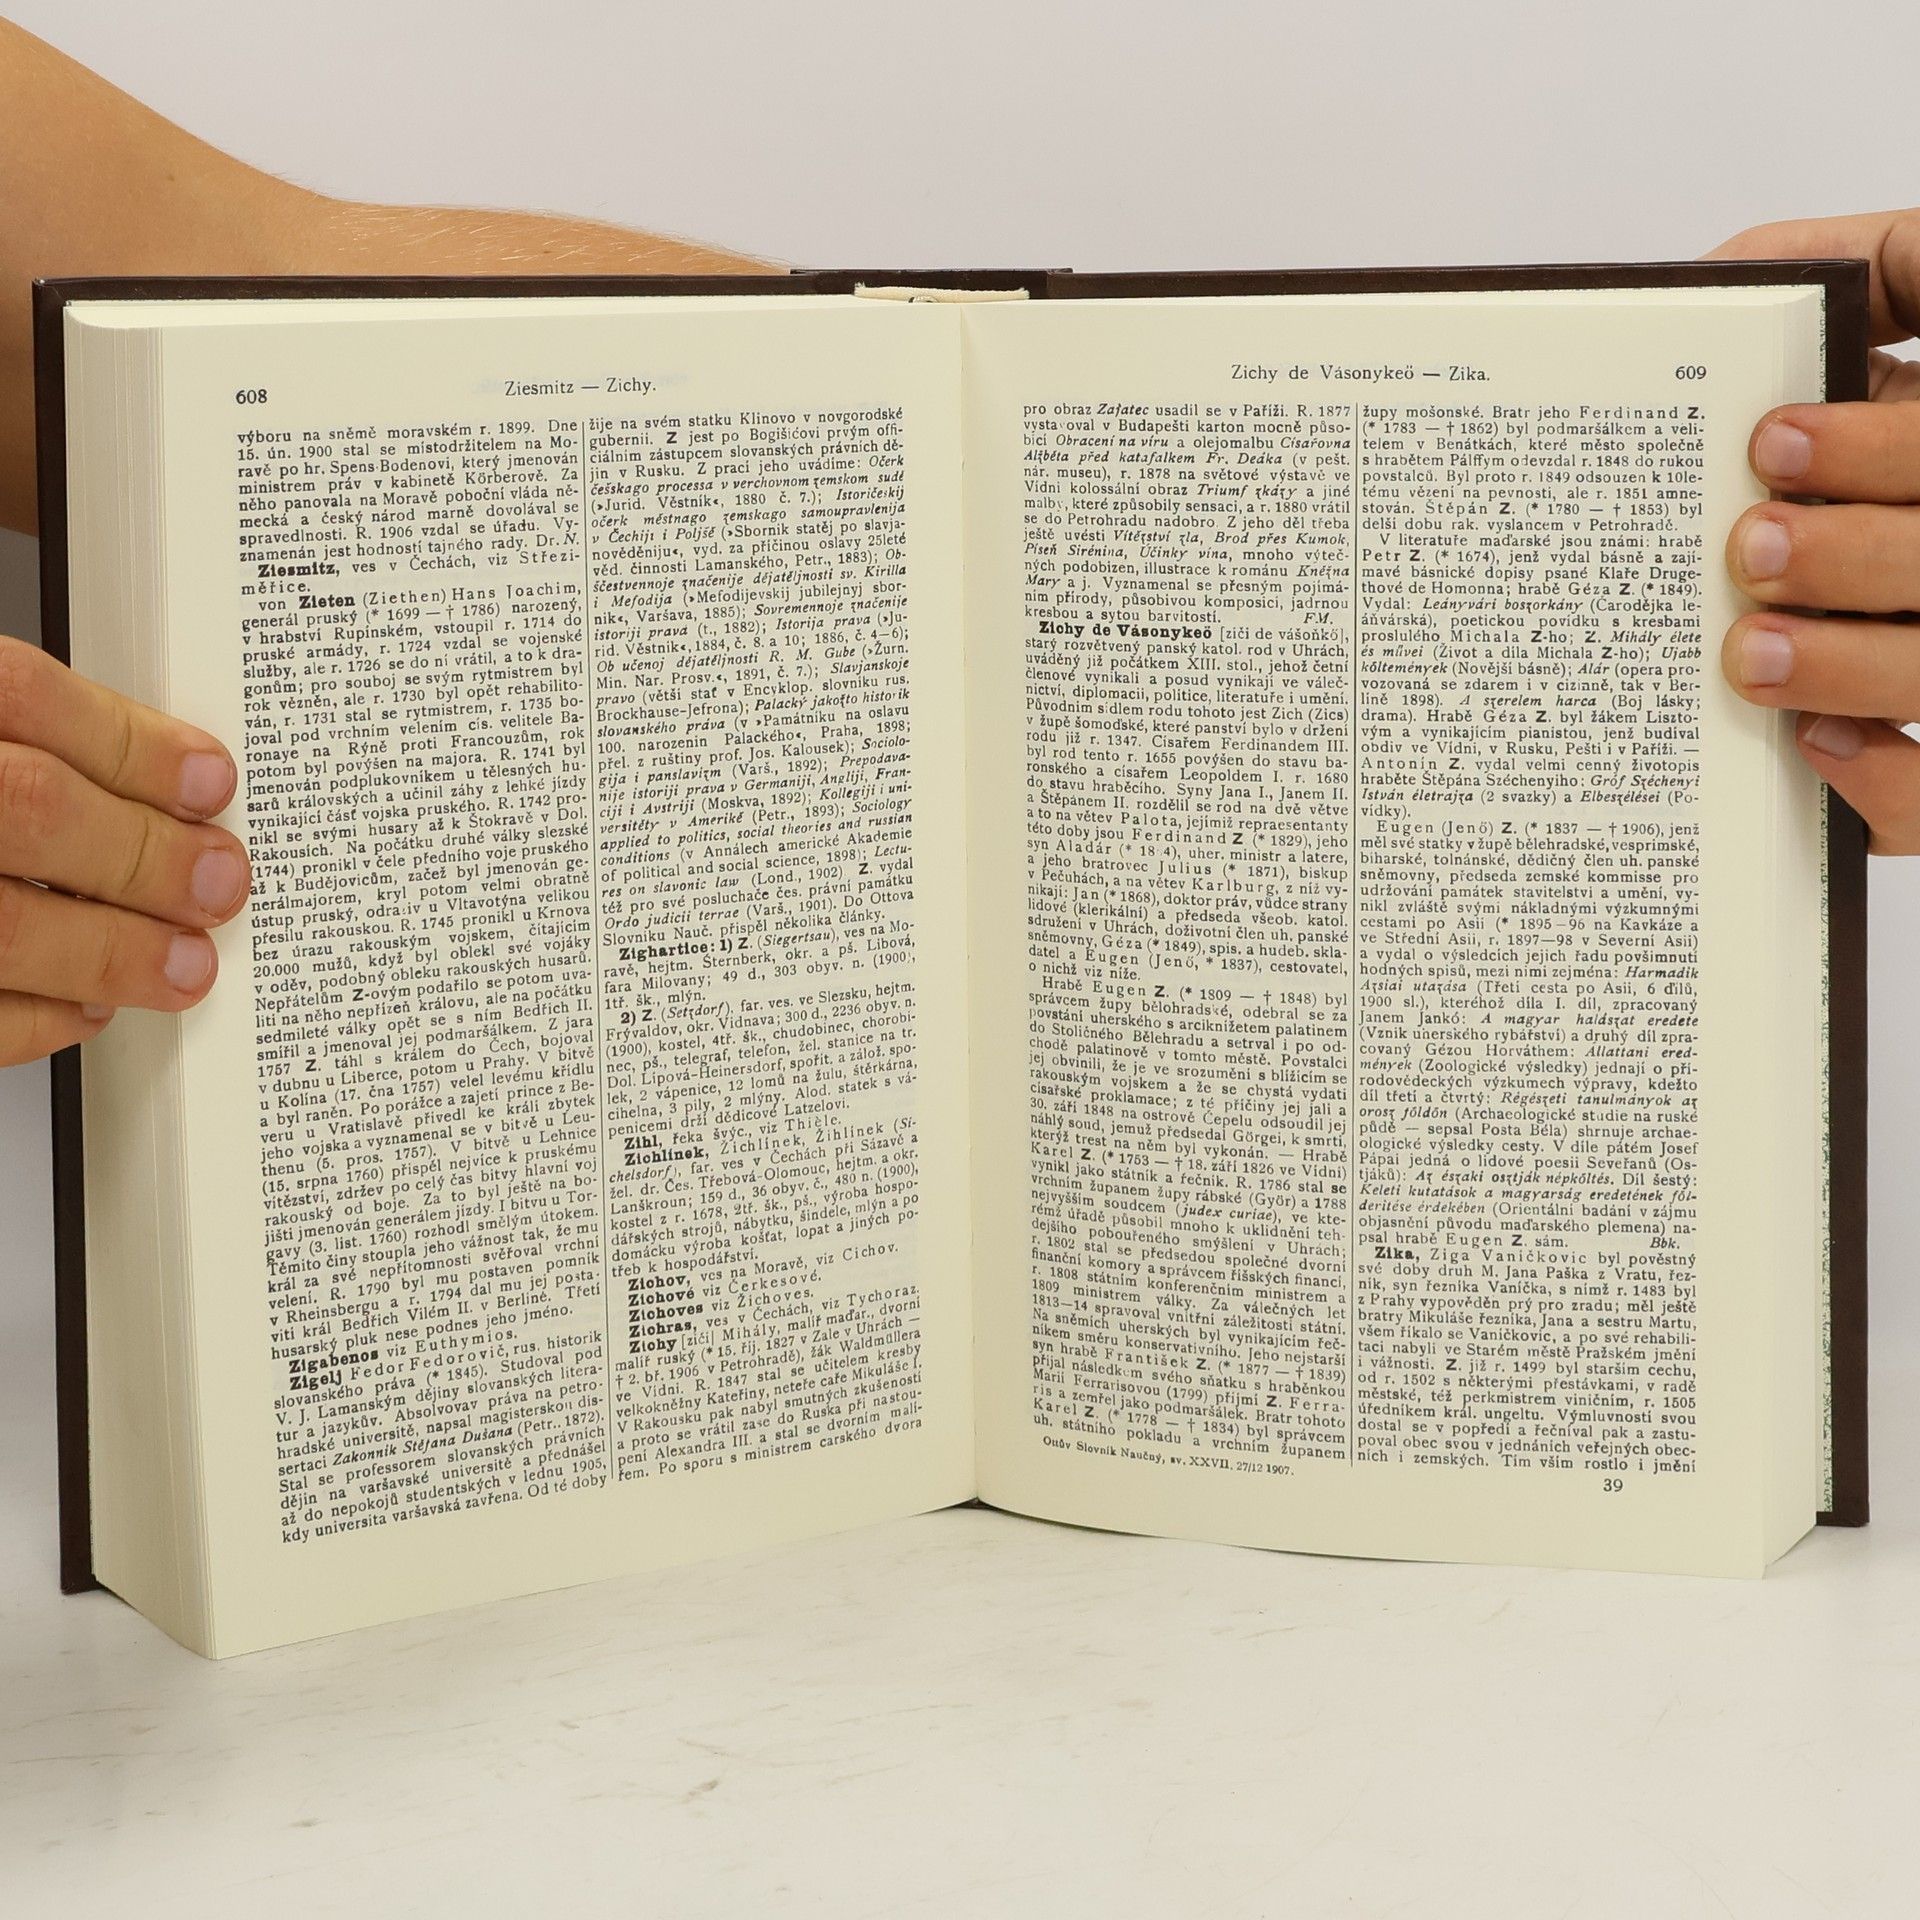 608
Ziesmitz — Zichy.
výboru na sněmě moravském r. 1899. Dne
15. ún. 1900 stal se místodržitelem na Mo-
ravě po hr. Spens-Bodenovi, který jmenován
ministrem práv v kabinetě Körberově. Za
něho panovala na Moravě poboční vláda ně-
mecká a český národ marně dovolával se
spravedlnosti. R. 1906 vzdal se úřadu. Vy-
znamenán jest hodností tajného rady. Dr. N.
Ziesmitz, ves v Čechách, viz Střezi-
měřice.
von Zieten (Ziethen) Hans Joachim,
generál pruský (* 1699 — † 1786) narozený,
v hrabství Rupinském, vstoupil r. 1714 do
pruské armády, r. 1724 vzdal se vojenské
služby, ale r. 1726 se do ní vrátil, a to k dra-
gonům; pro souboj se svým rytmistrem byl
rok vězněn, ale r. 1730 byl opět rehabilito-
ván, r. 1731 stal se rytmistrem, r. 1735 bo-
joval pod vrchním velením cís. velitele Ba-
ronaye na Rýně proti Francouzům, rok
potom byl povýšen na majora. R. 1741 byl
jmenován podplukovníkem u tělesných hu-
sarů královských a učinil záhy z lehké jízdy
vynikající část vojska pruského. R. 1742 pro-
nikl se svými husary až k Štokravě v Dol.
Rakousích. Na počátku druhé války slezské
(1744) pronikl v čele předního voje pruského
až k Budějovicům, začež byl jmenován ge-
nerálmajorem, kryl potom velmi obratně
ústup pruský, odraziv u Vltavotýna velikou
přesilu rakouskou. R. 1745 pronikl u Krnova
bez úrazu rakouským vojskem, čítajícím
20.000 mužů, když byl oblekl své vojáky
v oděv, podobný obleku rakouských husarů.
Nepřátelům Z-ovým podařilo se potom uva-
liti na něho nepřízeň královu, ale na počátku
sedmileté války opět se s ním Bedřich II.
smířil a jmenoval jej podmaršálkem. Z jara
1757 Z. táhl s králem do Čech, bojoval
v dubnu u Liberce, potom u Prahy. V bitvě
u Kolína (17. čna 1757) velel levému křídlu
a byl raněn. Po porážce a zajetí prince z Be-
veru u Vratislavě přivedl ke králi zbytek
jeho vojska a vyznamenal se v bitvě u Leu-
thenu (5. pros. 1757). V bitvě u Lehnice
(15. srpna 1760) přispěl nejvíce k pruskému
vítězství, zdržev po celý čas bitvy hlavní voj
rakouský od boje. Za to byl ještě na bo-
jišti jmenován generálem jízdy. I bitvu u Tor-
gavy (3. list. 1760) rozhodl smělým útokem.
Těmito činy stoupla jeho vážnost tak, že mu
král za své nepřítomnosti svěřoval vrchní
velení. R. 1790 byl mu postaven pomník
v Rheinsbergu a r. 1794 dal mu jej posta-
viti král Bedřich Vilém II. v Berlíně. Třetí
husarský pluk nese podnes jeho jméno.
Zigabenos viz Euthymios.
Zigelj Fedor Fedorovič, rus. historik
slovanského práva (* 1845). Studoval pod
V. J. Lamanským dějiny slovanských litera-
tur a jazykův. Absolvovav práva na petro-
hradské universitě, napsal magisterskou dis-
sertaci Zakonnik Stěfana Dušana (Petr., 1872).
Stal se professorem slovanských právních
dějin na varšavské universitě a přednášel
až do nepokojů studentských v lednu 1905,
kdy universita varšavská zavřena. Od té doby
žije na svém statku Klinovo v novgorodské
gubernii. Z jest po Bogišićovi prvým offi-
ciálním zástupcem slovanských právních dě-
jin v Rusku. Z prací jeho uvádíme: Očerk
češskago processa v verchovnom zemskom sudě
(›Jurid. Věstnik‹, 1880 č. 7.); Istoričeskij
očerk městnago zemskago samoupravlenija
v Čechiji i Poljšě (›Sbornik statěj po slavja-
nověděniju‹, vyd. za příčinou oslavy 25leté
věd. činnosti Lamanského, Petr., 1883); Ob-
ščestvennoje značenije dějatěljnosti sv. Kirilla
i Mefodija (›Mefodijevskij jubilejnyj sbor-
nik‹, Varšava, 1885); Sovremennoje značenije
istoriji prava (t., 1882); Istorija prava (›Ju-
rid. Věstnik‹, 1884, č. 8. a 10; 1886, č. 4—6);
Ob učenoj dějatěljnosti R. M. Gube (›Žurn.
Min. Nar. Prosv.‹, 1891, č. 7.); Slavjanskoje
pravo (větší stať v Encyklop. slovníku rus.
Brockhause-Jefrona); Palacký jakožto historik
slovanského práva (v ›Památníku na oslavu
100. narozenin Palackého‹, Praha, 1898;
přel. z ruštiny prof. Jos. Kalousek); Sociolo-
gija i panslavizm (Varš., 1892); Prepodava-
nije istoriji prava v Germaniji, Angliji, Fran-
ciji i Avstriji (Moskva, 1892); Kollegiji i uni-
versitěty v Amerikě (Petr., 1893); Sociology
applied to politics, social theories and russian
conditions (v Annálech americké Akademie
of political and social science, 1898); Lectu-
res on slavonic law (Lond., 1902). Z. vydal
též pro své posluchače čes. právní památku
Ordo judicii terrae (Varš., 1901). Do Ottova
Slovníku Nauč. přispěl několika články.
Zighartice: 1) Z. (Siegertsau), ves na Mo-
ravě, hejtm. Šternberk, okr. a pš. Libová,
fara Milovany; 49 d., 303 obyv. n. (1900),
1tř. šk., mlýn.
2) Z. (Setzdorf), far. ves. ve Slezsku, hejtm.
Frývaldov, okr. Vidnava; 300 d., 2236 obyv. n.
(1900), kostel, 4tř. šk., chudobinec, chorobi-
nec, pš., telegraf, telefon, žel. stanice na tr.
Dol. Lípová-Heinersdorf, spořit. a zálož. spo-
lek, 2 vápenice, 12 lomů na žulu, štěrkárna,
cihelna, 3 pily, 2 mlýny. Alod. statek s vá-
penicemi drží dědicové Latzelovi.
Zihl, řeka švýc., viz Thièle.
Zichlínek, Žichlínek, Žihlínek (Si-
chelsdorf), far. ves v Čechách při Sázavě a
žel. dr. Čes. Třebová-Olomouc, hejtm. a okr.
Lanškroun; 159 d., 36 obyv. č., 480 n. (1900),
kostel z r. 1678, 2tř. šk., pš., výroba hospo-
dářských strojů, nábytku, šindele, mlýn a po
domácku výroba košťat, lopat a jiných po-
třeb k hospodářství.
Zichov, ves na Moravě, viz Cichov.
Zichové viz Čerkesové.
Zichoves viz Žichoves.
Zichras, ves v Čechách, viz Tychoraz.
Zichy [zičí] Mihály, malíř maďar., dvorní
malíř ruský (* 15. říj. 1827 v Zale v Uhrách —
† 2. bř. 1906 v Petrohradě), žák Waldmüllera
ve Vídni. R. 1847 stal se učitelem kresby
velkokněžny Kateřiny, neteře caře Mikuláše I.
V Rakousku pak nabyl smutných zkušeností
a proto se vrátil zase do Ruska při nastou-
pení Alexandra III. a stal se dvorním malí-
řem. Po sporu s ministrem carského dvora
Zichy de Vásonykeö — Zika.
609
pro obraz Zajatec usadil se v Paříži. R. 1877
vystavoval v Budapešti karton mocně půso-
bící Obracení na víru a olejomalbu Císařovna
Alžběta před katafalkem Fr. Deáka (v pešt.
nár. museu), r. 1878 na světové výstavě ve
Vídni kolossální obraz Triumf zkázy a jiné
malby, které způsobily sensaci, a r. 1880 vrátil
se do Petrohradu nadobro. Z jeho děl třeba
ještě uvésti Vítězství zla, Brod přes Kumok,
Píseň Sirénina, Účinky vína, mnoho výteč-
ných podobizen, illustrace k románu Kněžna
Mary a j. Vyznamenal se přesným pojímá-
ním přírody, působivou komposicí, jadrnou
kresbou a sytou barvitostí. F.M.
Zichy de Vásonykeö [ziči de vášoňkö],
starý rozvětvený panský katol. rod v Uhrách,
uváděný již počátkem XIII. stol., jehož četní
členové vynikali a posud vynikají ve váleč-
nictví, diplomacii, politice, literatuře i umění.
Původním sídlem rodu tohoto jest Zich (Zics)
v župě šomoďské, které panství bylo v držení
rodu již r. 1347. Císařem Ferdinandem III.
byl rod tento r. 1655 povýšen do stavu ba-
ronského a císařem Leopoldem I. r. 1680
do stavu hraběcího. Syny Jana I., Janem II.
a Štěpánem II. rozdělil se rod na dvě větve
a to na větev Palota, jejímiž repraesentanty
této doby jsou Ferdinand Z (* 1829), jeho
syn Aladár (* 18 4), uher. ministr a latere,
a jeho bratrovec Julius (* 1871), biskup
v Pečuhách, a na větev Karlburg, z níž vy-
nikají: Jan (* 1868), doktor práv, vůdce strany
lidové (klerikální) a předseda všeob. katol.
sdružení v Uhrách, doživotní člen uh. panské
sněmovny, Géza (* 1849), spis. a hudeb. skla-
datel a Eugen (Jenő, * 1837), cestovatel,
o nichž viz níže.
Hrabě Eugen Z. (* 1809 — † 1848) byl
správcem župy bělohradské, odebral se za
povstání uherského s arciknížetem palatinem
do Stoličného Bělehradu a setrval i po od-
chodě palatinově v tomto městě. Povstalci
jej obvinili, že je ve srozumění s blížícím se
rakouským vojskem a že se chystá vydati
císařské proklamace; z té příčiny jej jali a
30. září 1848 na ostrově Čepelu odsoudil jej
náhlý soud, jemuž předsedal Görgei, k smrti,
kterýž trest na něm byl vykonán. — Hrabě
Karel Z. (* 1753 — † 18. září 1826 ve Vídni)
vynikl jako státník a řečník. R. 1786 stal se
vrchním županem župy rábské (Györ) a 1788
nejvyšším soudcem (judex curiae), ve kte-
rémž úřadě působil mnoho k uklidnění teh-
dejšího pobouřeného smýšlení v Uhrách;
r. 1802 stal se předsedou společné dvorní
finanční komory a správcem říšských financí,
r. 1808 státním konferenčním ministrem a
1809 ministrem války. Za válečných let
1813—14 spravoval vnitřní záležitosti státní.
Na sněmích uherských byl vynikajícím řeč-
níkem směru konservativního. Jeho nejstarší
syn hrabě František Z. (* 1877 — † 1839)
přijal následkem svého sňatku s hraběnkou
Marií Ferrarisovou (1799) příjmí Z. Ferra-
ris a zemřel jako podmaršálek. Bratr tohoto
Karel Z. (* 1778 — † 1834) byl správcem
uh. státního pokladu a vrchním županem
Ottův Slovník Naučný, sv. XXVII. 27/12 1907.
župy mošonské. Bratr jeho Ferdinand Z.
(* 1783 — † 1862) byl podmaršálkem a veli-
telem v Benátkách, které město společně
s hrabětem Pálffym odevzdal r. 1848 do rukou
povstalců. Byl proto r. 1849 odsouzen k 10le-
tému vězení na pevnosti, ale r. 1851 amne-
stován. Štěpán Z. (* 1780 — † 1853) byl
delší dobu rak. vyslancem v Petrohradě.
V literatuře maďarské jsou známi: hrabě
Petr Z. (* 1674), jenž vydal básně a zají-
mavé básnické dopisy psané Klaře Druge-
thové de Homonna; hrabě Géza Z. (* 1849).
Vydal: Leányvári boszorkány (Čarodějka le-
áňvárská), poetickou povídku s kresbami
proslulého Michala Z-ho; Z. Mihály élete
és művei (Život a díla Michala Z-ho); Ujabb
költemények (Novější básně); Alár (opera pro-
vozovaná se zdarem i v cizinně, tak v Ber-
líně 1898). A szerelem harca (Boj lásky;
drama). Hrabě Géza Z. byl žákem Liszto-
vým a vynikajícím pianistou, jenž budíval
obdiv ve Vídni, v Rusku, Pešti i v Paříži. —
Antonín Z. vydal velmi cenný životopis
hraběte Štěpána Széchenyiho: Gróf Széchenyi
István életrajza (2 svazky) a Elbeszélései (Po-
vídky).
Eugen (Jenő) Z. (* 1837 — † 1906), jenž
měl své statky v župě bělehradské, vesprimské,
biharské, tolnánské, dědičný člen uh. panské
sněmovny, předseda zemské kommisse pro
udržování památek stavitelství a umění, vy-
nikl zvláště svými nákladnými výzkumnými
cestami po Asii (* 1895–96 na Kavkáze a
ve Střední Asii, r. 1897—98 v Severní Asii)
a vydal o výsledcích jejich řadu povšimnutí
hodných spisů, mezi nimi zejména: Harmadik
Azsiai utazása (Třetí cesta po Asii, 6 dílů,
1900 sl.), kteréhož díla I. díl, zpracovaný
Janem Jankó: A magyar halászat eredete
(Vznik uherského rybářství) a druhý díl zpra-
covaný Gézou Horváthem: Allattani ered-
mények (Zoologické výsledky) jednají o pří-
rodovědeckých výzkumech výpravy, kdežto
díl třetí a čtvrtý: Régészeti tanulmányok az
orosz földön (Archaeologické studie na ruské
půdě — sepsal Posta Béla) shrnuje archae-
ologické výsledky cesty. V díle pátém Josef
Pápai jedná o lidové poesii Severanů (Os-
tjáků): Az északi osztják népköltés. Díl šestý:
Keleti kutatások a magyarság eredetének föl-
derítése érdekében (Orientální badání v zájmu
objasnění původu maďarského plemena) na-
psal hrabě Eugen Z. sám. Bbk.
Zika, Ziga Vaníčkovic byl pověstný
své doby druh M. Jana Paška z Vratu, řez-
ník, syn řezníka Vaníčka, s nímž r. 1483 byl
z Prahy vypověděn prý pro zradu; měl ještě
bratry Mikuláše řezníka, Jana a sestru Martu,
všem říkalo se Vaníčkovic, a po své rehabili-
taci nabyli ve Starém městě Pražském jmění
i vážnosti. Z. již r. 1499 byl starším cechu,
od r. 1502 s některými přestávkami, v radě
městské, též perkmistrem viničním, r. 1505
úředníkem král. ungeltu. Výmluvností svou
dostal se v popředí a řečníval pak a zastu-
poval obec svou v jednáních veřejných obec-
ních i zemských. Tím vším rostlo i jmění
39